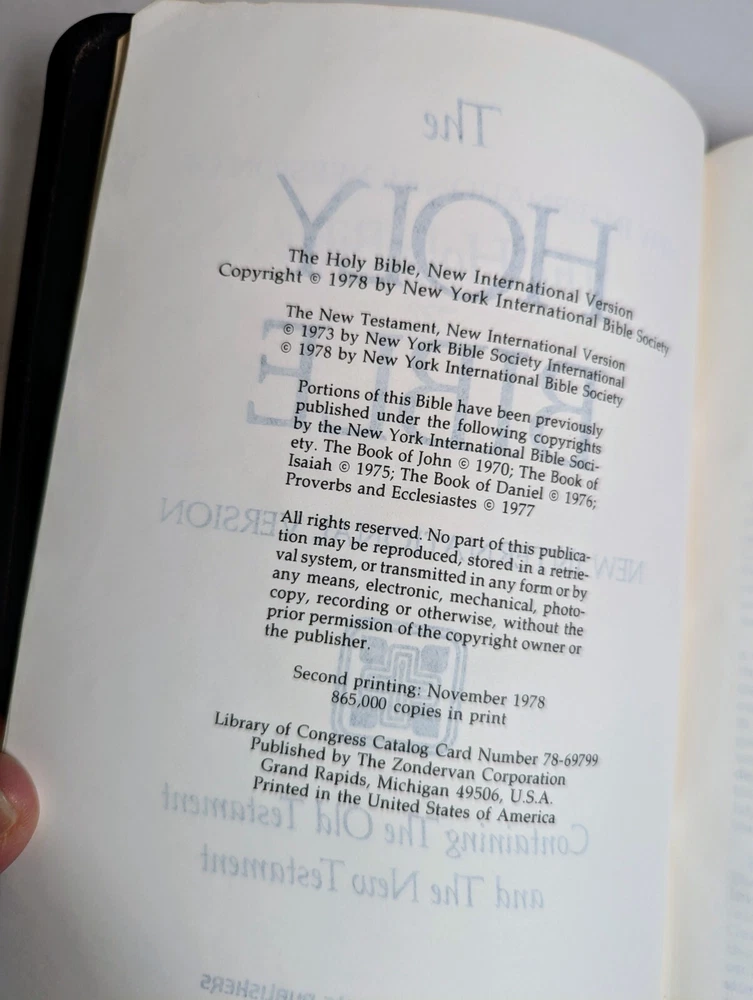 The Holy Bible, New International Version
Copyright © 1978 by New York International Bible Society
The New Testament, New International Version
© 1973 by New York Bible Society International
© 1978 by New York International Bible Society
Portions of this Bible have been previously
published under the following copyrights
by the New York International Bible Soci-
ety. The Book of John © 1970; The Book of
Isaiah © 1975; The Book of Daniel © 1976;
Proverbs and Ecclesiastes © 1977
All rights reserved. No part of this publica-
tion may be reproduced, stored in a retrie-
val system, or transmitted in any form or by
any means, electronic, mechanical, photo-
copy, recording or otherwise, without the
prior permission of the copyright owner or
the publisher.
Second printing: November 1978
865,000 copies in print
Library of Congress Catalog Card Number 78-69799
Published by The Zondervan Corporation
Grand Rapids, Michigan 49506, U.S.A.
Printed in the United States of America
The
HOLY
BIBLE
NEW INTERNATIONAL VERSION
Containing The Old Testament
and The New Testament
PUBLISHERS